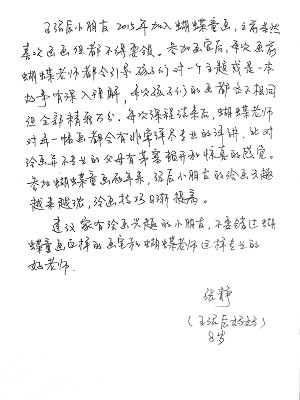 王浥辰小朋友2015年加入蝴蝶童画,之前虽然
喜欢画画但都不得要领。参加画室后,每次画前
蝴蝶老师都会引导孩子们对一个主题或是一本
故事书深入理解,每次孩子们的画都各不相同
但全部精彩万分。每次课程结束后,蝴蝶老师
对每一幅画都会有非常详尽专业的评讲,让对
绘画并不专业的父母有茅塞顿开和惊喜的感觉。
参加蝴蝶童画两年来,浥辰小朋友的绘画兴趣
越来越浓,绘画技巧日渐提高。
建议家有绘画兴趣的小朋友,不要错过蝴
蝶童画这样的画室和蝴蝶老师这样专业的
好老师。
张静
(王浥辰妈妈)
8岁